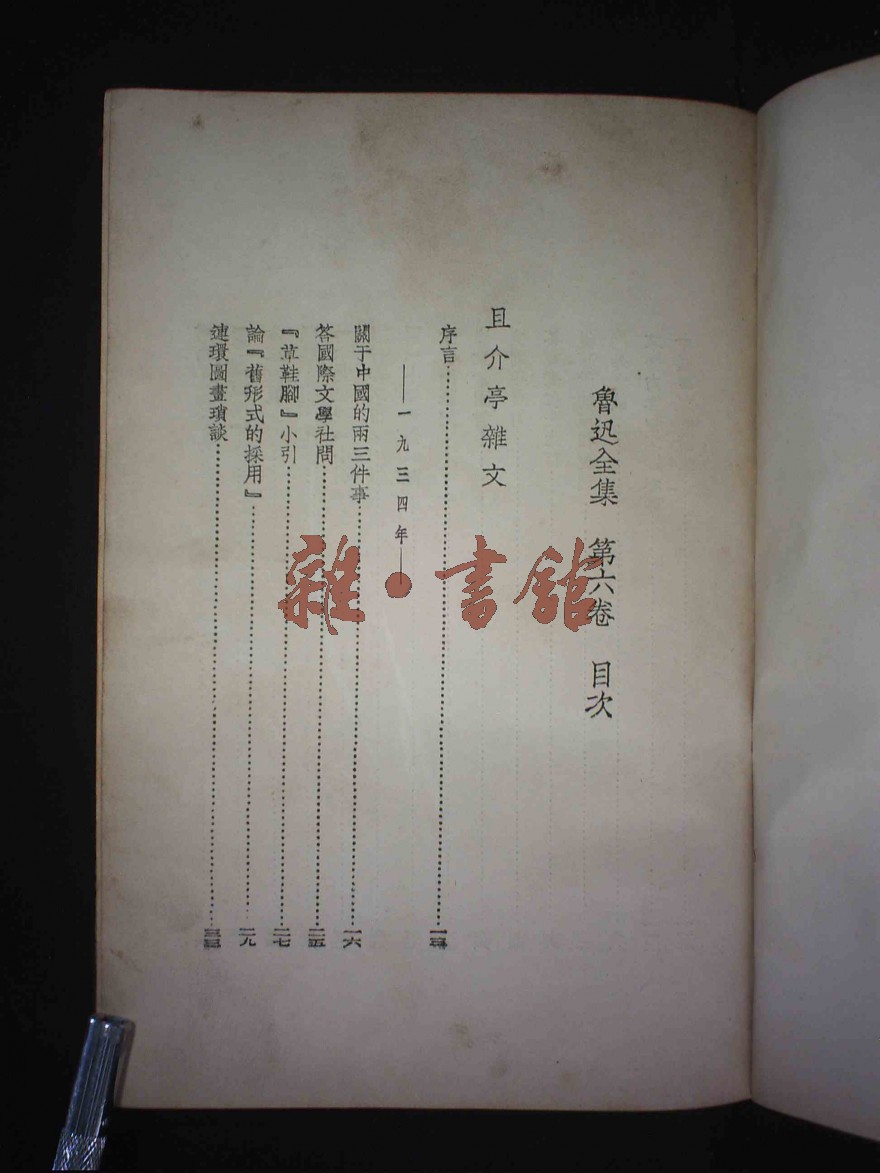 魯迅全集 第六卷 目次
且介亭雜文
序言……一三
——一九三四年——
關于中國的兩三件事……一六
答國際文學社問……二五
『草鞋腳』小引……二七
論『舊形式的採用』……二九
連環圖畫瑣談……三三
雜·書館